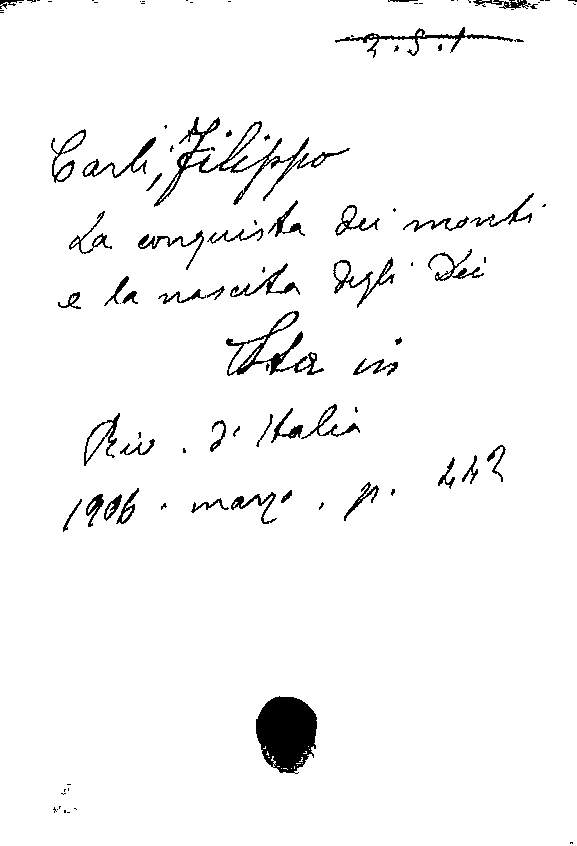 2.S.1
Carli, Filippo
La conquista dei monti
e la nascita degli Dei
Sta in
Riv. d'Italia
1906. marzo. p. 442